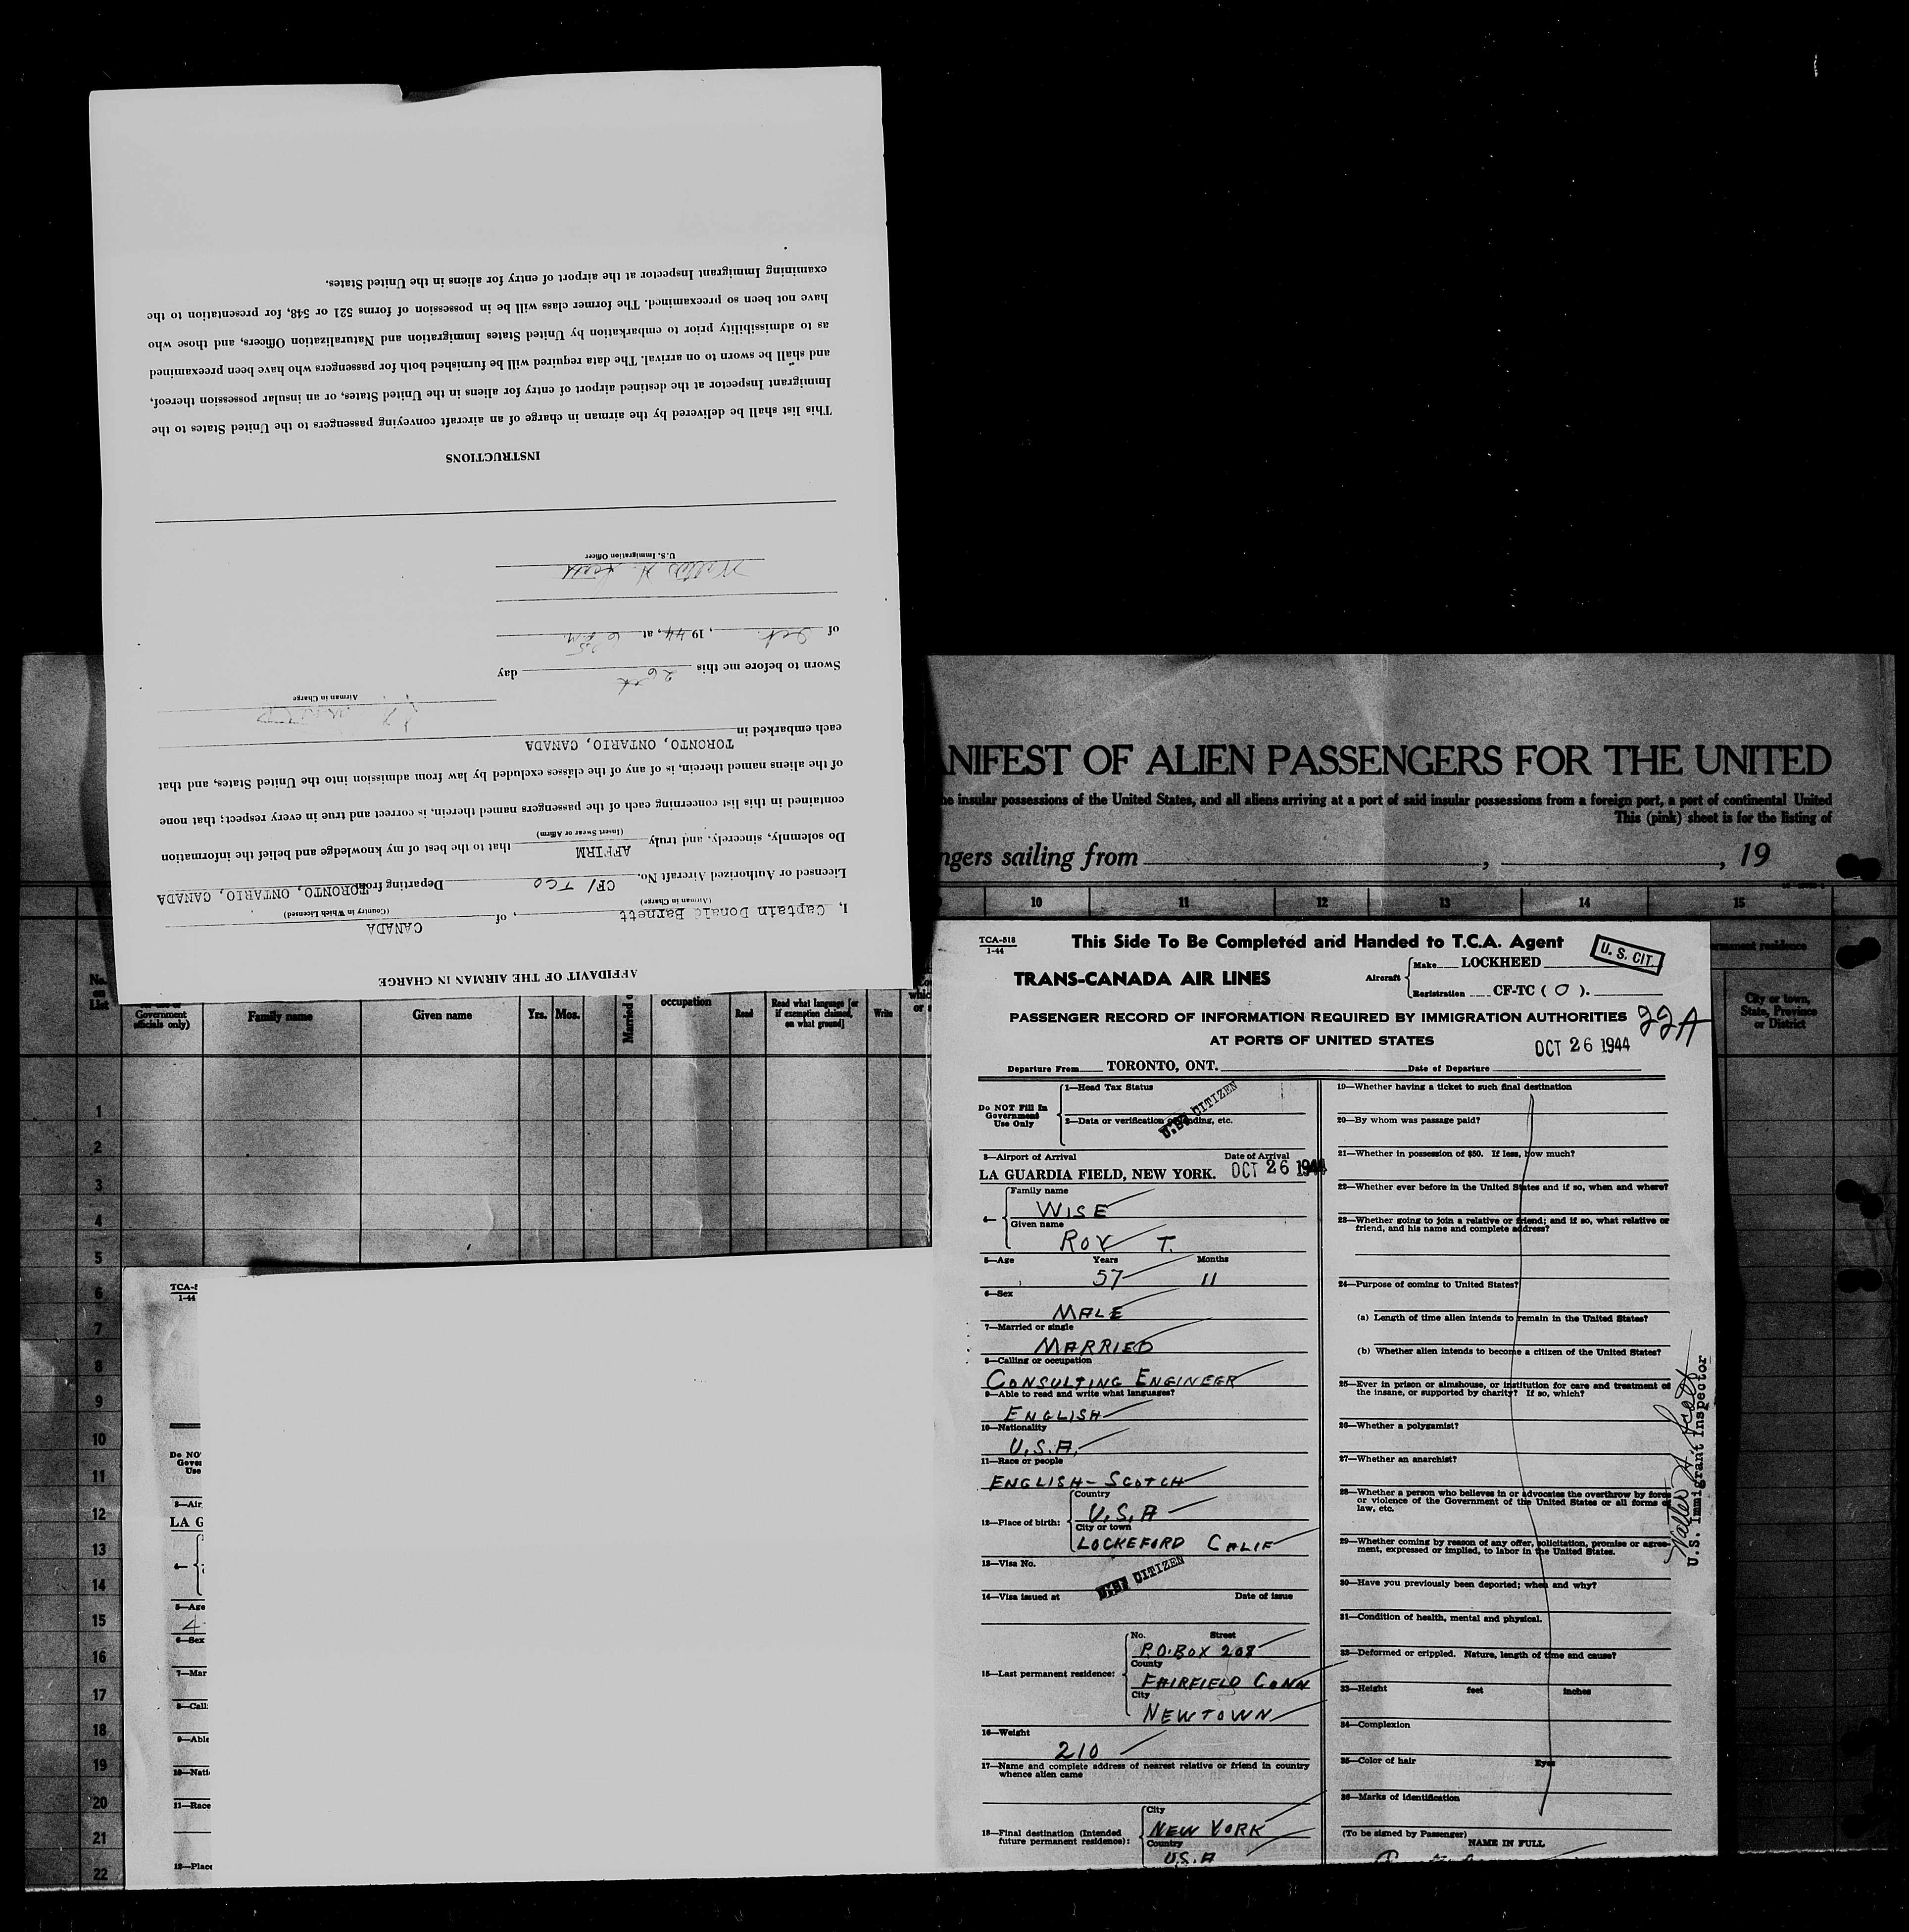 AFFIDAVIT OF THE AIRMAN IN CHARGE
I, Captain Donald Barnett, of CANADA
(Airman in Charge) (Country in Which Licensed)
Licensed or Authorized Aircraft No. CF/ TCO Departing from TORONTO, ONTARIO, CANADA
Do solemnly, sincerely, and truly AFFIRM that to the best of my knowledge and belief the information
(Insert Swear or Affirm)
contained in this list concerning each of the passengers named therein, is correct and true in every respect; that none
of the aliens named therein, is of any of the classes excluded by law from admission into the United States, and that
each embarked in TORONTO, ONTARIO, CANADA
Airman in Charge
Sworn to before me this 26th day
of Oct., 1944, at
U.S. Immigration Officer
INSTRUCTIONS
This list shall be delivered by the airman in charge of an aircraft conveying passengers to the United States to the
Immigrant Inspector at the destined airport of entry for aliens in the United States, or an insular possession thereof,
and shall be sworn to on arrival. The data required will be furnished both for passengers who have been preexamined
as to admissibility prior to embarkation by United States Immigration and Naturalization Officers, and those who
have not been so preexamined. The former class will be in possession of forms 521 or 548, for presentation to the
examining Immigrant Inspector at the airport of entry for aliens in the United States.
ANIFEST OF ALIEN PASSENGERS FOR THE UNITED
he insular possessions of the United States, and all aliens arriving at a port of said insular possessions from a foreign port, a port of continental United
This (pink) sheet is for the listing of
ngers sailing from , , 19
10 11 12 13 14 15
No. on List
Government officials only)
Family name
Given name
Yrs. Mos.
Married o
occupation
Read
Read what language [or if exemption claimed, on what ground]
Write
permanent residence
City or town, State, Province or District
1
2
3
4
5
6
7
8
9
10
11
12
13
14
15
16
17
18
19
20
21
22
TCA-5
1-44
Do NO
Gover
Use
3—Air
LA G
4—
5—Age
4
6—Sex
7—Mar
8—Call
9—Able
10—Nati
11—Race
12—Place
TCA-518
1-44
This Side To Be Completed and Handed to T.C.A. Agent
U. S. CIT.
TRANS-CANADA AIR LINES
Aircraft Make LOCKHEED
Registration CF-TC ( O ).
PASSENGER RECORD OF INFORMATION REQUIRED BY IMMIGRATION AUTHORITIES
AT PORTS OF UNITED STATES
22A
OCT 26 1944
Departure From TORONTO, ONT. Date of Departure
Do NOT Fill In Government Use Only
1—Head Tax Status
2—Data or verification of landing, etc.
U.S. CITIZEN
3—Airport of Arrival Date of Arrival
LA GUARDIA FIELD, NEW YORK. OCT 26 1944
4—
Family name
WISE
Given name
ROY T.
5—Age Years Months
57 11
6—Sex
MALE
7—Married or single
MARRIED
8—Calling or occupation
CONSULTING ENGINEER
9—Able to read and write what languages?
ENGLISH
10—Nationality
U.S.A.
11—Race or people
ENGLISH-SCOTCH
12—Place of birth:
Country
U.S.A
City or town
LOCKEFORD CALIF
13—Visa No.
U.S. CITIZEN
14—Visa issued at Date of issue
15—Last permanent residence:
No. Street
P.O. BOX 208
County
FAIRFIELD CONN
City
NEWTOWN
16—Weight
210
17—Name and complete address of nearest relative or friend in country whence alien came
18—Final destination (Intended future permanent residence):
City
NEW YORK
Country
U.S.A
19—Whether having a ticket to such final destination
20—By whom was passage paid?
21—Whether in possession of $50. If less, how much?
22—Whether ever before in the United States and if so, when and where?
23—Whether going to join a relative or friend; and if so, what relative or
friend, and his name and complete address?
24—Purpose of coming to United States?
(a) Length of time alien intends to remain in the United States?
(b) Whether alien intends to become a citizen of the United States?
25—Ever in prison or almshouse, or institution for care and treatment of
the insane, or supported by charity? If so, which?
26—Whether a polygamist?
27—Whether an anarchist?
28—Whether a person who believes in or advocates the overthrow by force
or violence of the Government of the United States or all forms of
law, etc.
29—Whether coming by reason of any offer, solicitation, promise or agree-
ment, expressed or implied, to labor in the United States.
30—Have you previously been deported; when and why?
31—Condition of health, mental and physical.
32—Deformed or crippled. Nature, length of time and cause?
33—Height feet inches
34—Complexion
35—Color of hair Eyes
36—Marks of identification
(To be signed by Passenger)
NAME IN FULL
Walter H. Scott
U.S. Immigrant Inspector